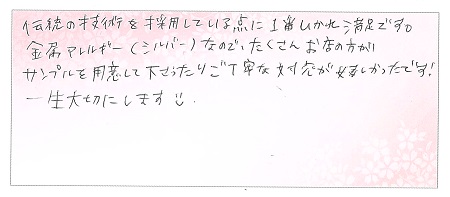 伝統の技術を採用している点に1番ひかれ満足です。
金属アレルギー(シルバー)なので、たくさんお店の方が
サンプルを用意して下さったりご丁寧な対応が嬉しかったです!
一生大切にします